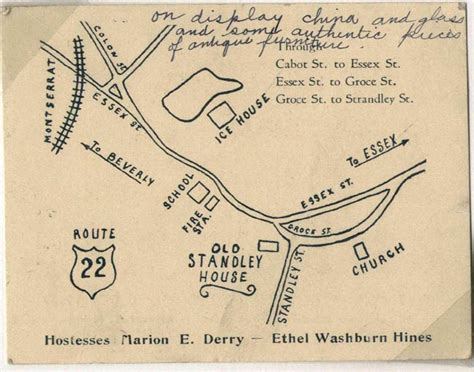 on display china and glass
and some authentic pieces
of antique furniture.
Through
Cabot St. to Essex St.
Essex St. to Groce St.
Groce St. to Strandley St.
COLON ST.
MONTSERRAT
ESSEX ST.
ICE HOUSE
To BEVERLY
To ESSEX
SCHOOL
FIRE STA.
ESSEX ST.
GROCE ST.
ROUTE
22
OLD
STANDLEY
HOUSE
STANDLEY ST.
CHURCH
Hostesses Marion E. Derry — Ethel Washburn Hines